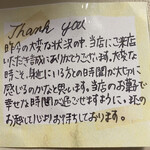 Thank you
昨今の大変な状況の中、当店にご来店
いただき誠にありがとうございます。大変な
時こそ、身近にいる方との時間が大切に
感じるのかなと思います。当店のお料理で
幸せな時間が過ごせますように。またの
お越しを心よりお待ちしております。